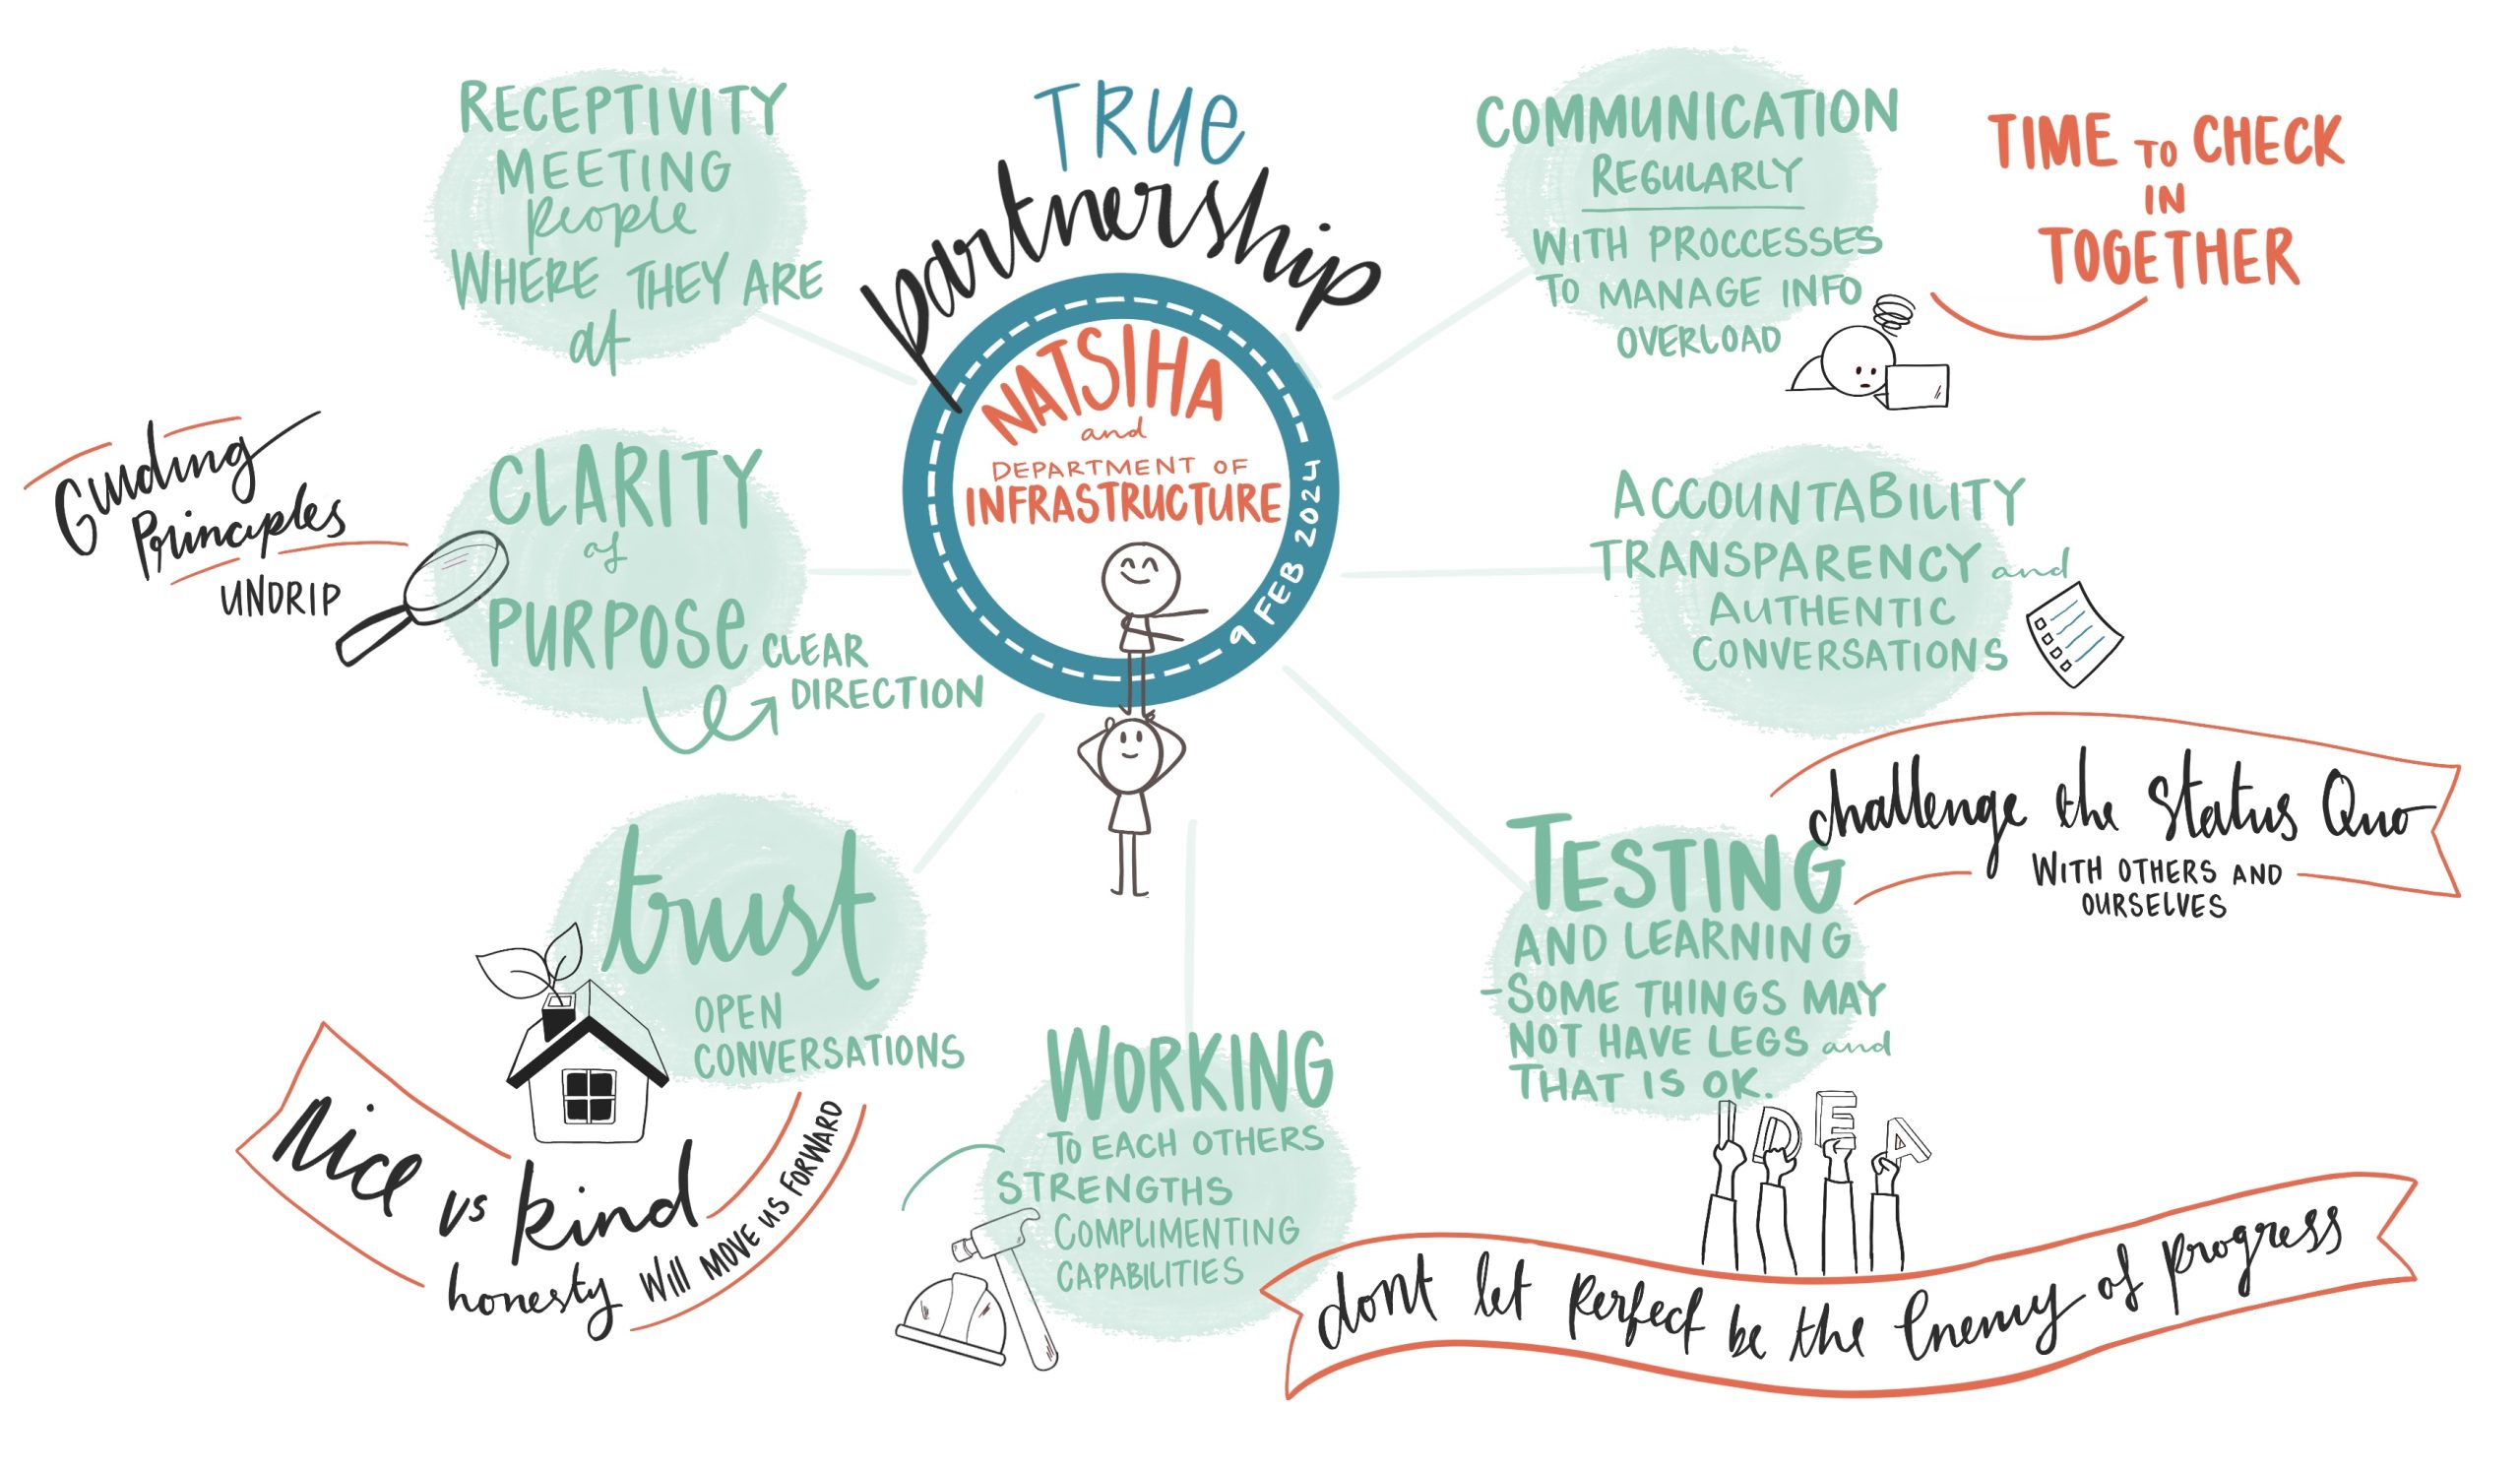 TRUE
partnership
NATSIHA
and
DEPARTMENT OF
INFRASTRUCTURE
9 FEB 2024
RECEPTIVITY
MEETING
people
WHERE THEY ARE
at
Guiding
Principles
UNDRIP
CLARITY
of
PURPOSE
CLEAR
DIRECTION
trust
OPEN
CONVERSATIONS
Nice vs kind
honesty will MOVE US FORWARD
WORKING
TO EACH OTHERS
STRENGTHS
COMPLIMENTING
CAPABILITIES
COMMUNICATION
REGULARLY
WITH PROCCESSES
TO MANAGE INFO
OVERLOAD
TIME TO CHECK
IN
TOGETHER
ACCOUNTABILITY
TRANSPARENCY and
AUTHENTIC
CONVERSATIONS
challenge the Status Quo
WITH OTHERS AND
OURSELVES
TESTING
AND LEARNING
-SOME THINGS MAY
NOT HAVE LEGS and
THAT IS OK.
IDEA
dont let perfect be the Enemy of progress